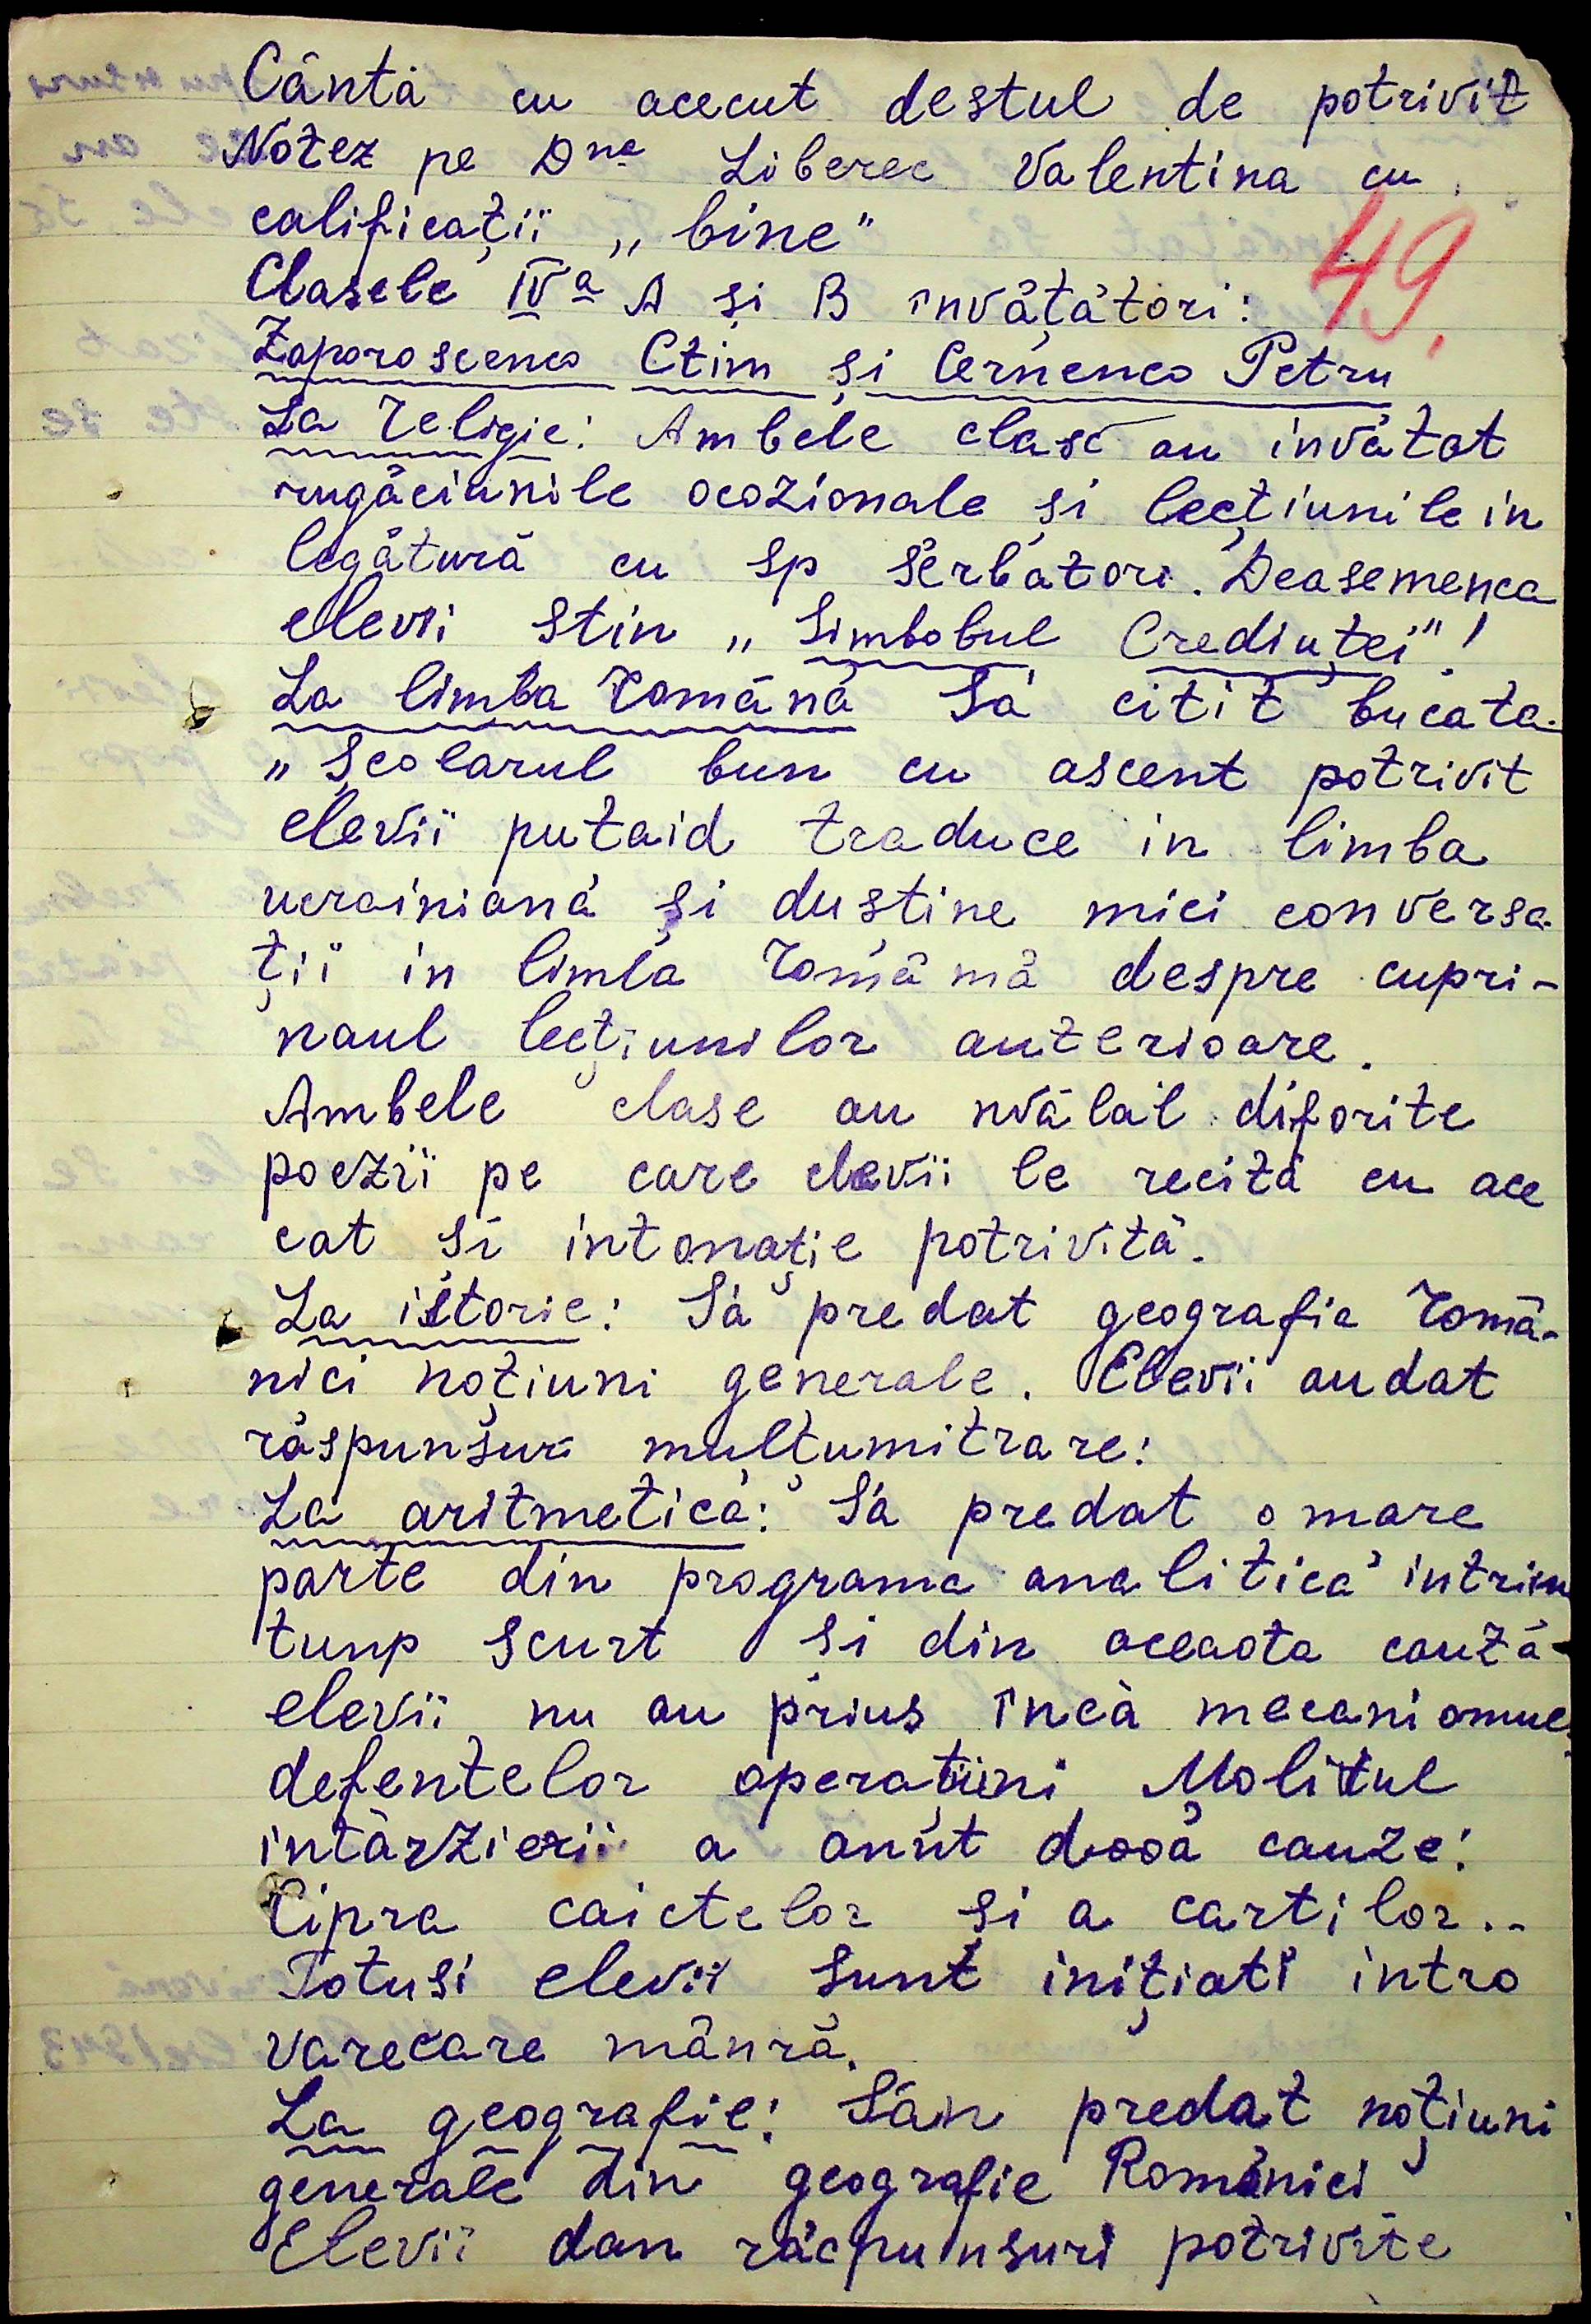 Cântă cu acecut destul de potrivit
Notez pe Dna Liberec Valentina cu
calificații „bine"
49.
Clasele IVa A și B învățători:
Zaporoscenco Ctim și Cernenco Petru
La religie: Ambele clase au invățat
rugăciunile ocozionale și lecțiunile in
legătură cu sp sěrbatori. Deasemenea
elevii stiu „Simbobul Crediuței"!
La limba română Să citit bucata
„Școlarul bun cu ascent potrivit
elevii putaid traduce in limba
ucrainiană și dustine mici conversa-
ții in limba Romămă despre cupri-
naul lecțiunilor anterioare.
Ambele clase au nvălat diforite
poezii pe care elevii le recită cu ace
cat și intonație potrivită.
La istorie: Să predat geografia Romă-
niei noțiuni generale. Elevii au dat
răspunsur mulțumitrare:
La aritmetică: Să predat o mare
parte din programa analitică intrieu
tunp scurt si din aceaota cauză
elevii nu au prius încă mecaniomue
defentelor operațiuni Molitul
intărzierii a anŭt dooă cauze:
Cipra caietelor și a cartilor..
Totusi elevii sunt inițiati intro
varecare mânră.
La geografie: Săn predat noțiuni
generale din geografie Romăniei
Elevii dan răcpunsuri potrivite